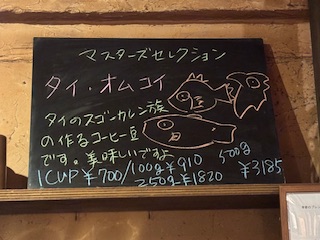 マスターズセレクション
タイ・オムコイ
タイのスゴンカレン族
の作るコーヒー豆
です。美味しいですよ
1CUP ¥700/100g ¥910
250g-¥1820
500g
¥3185